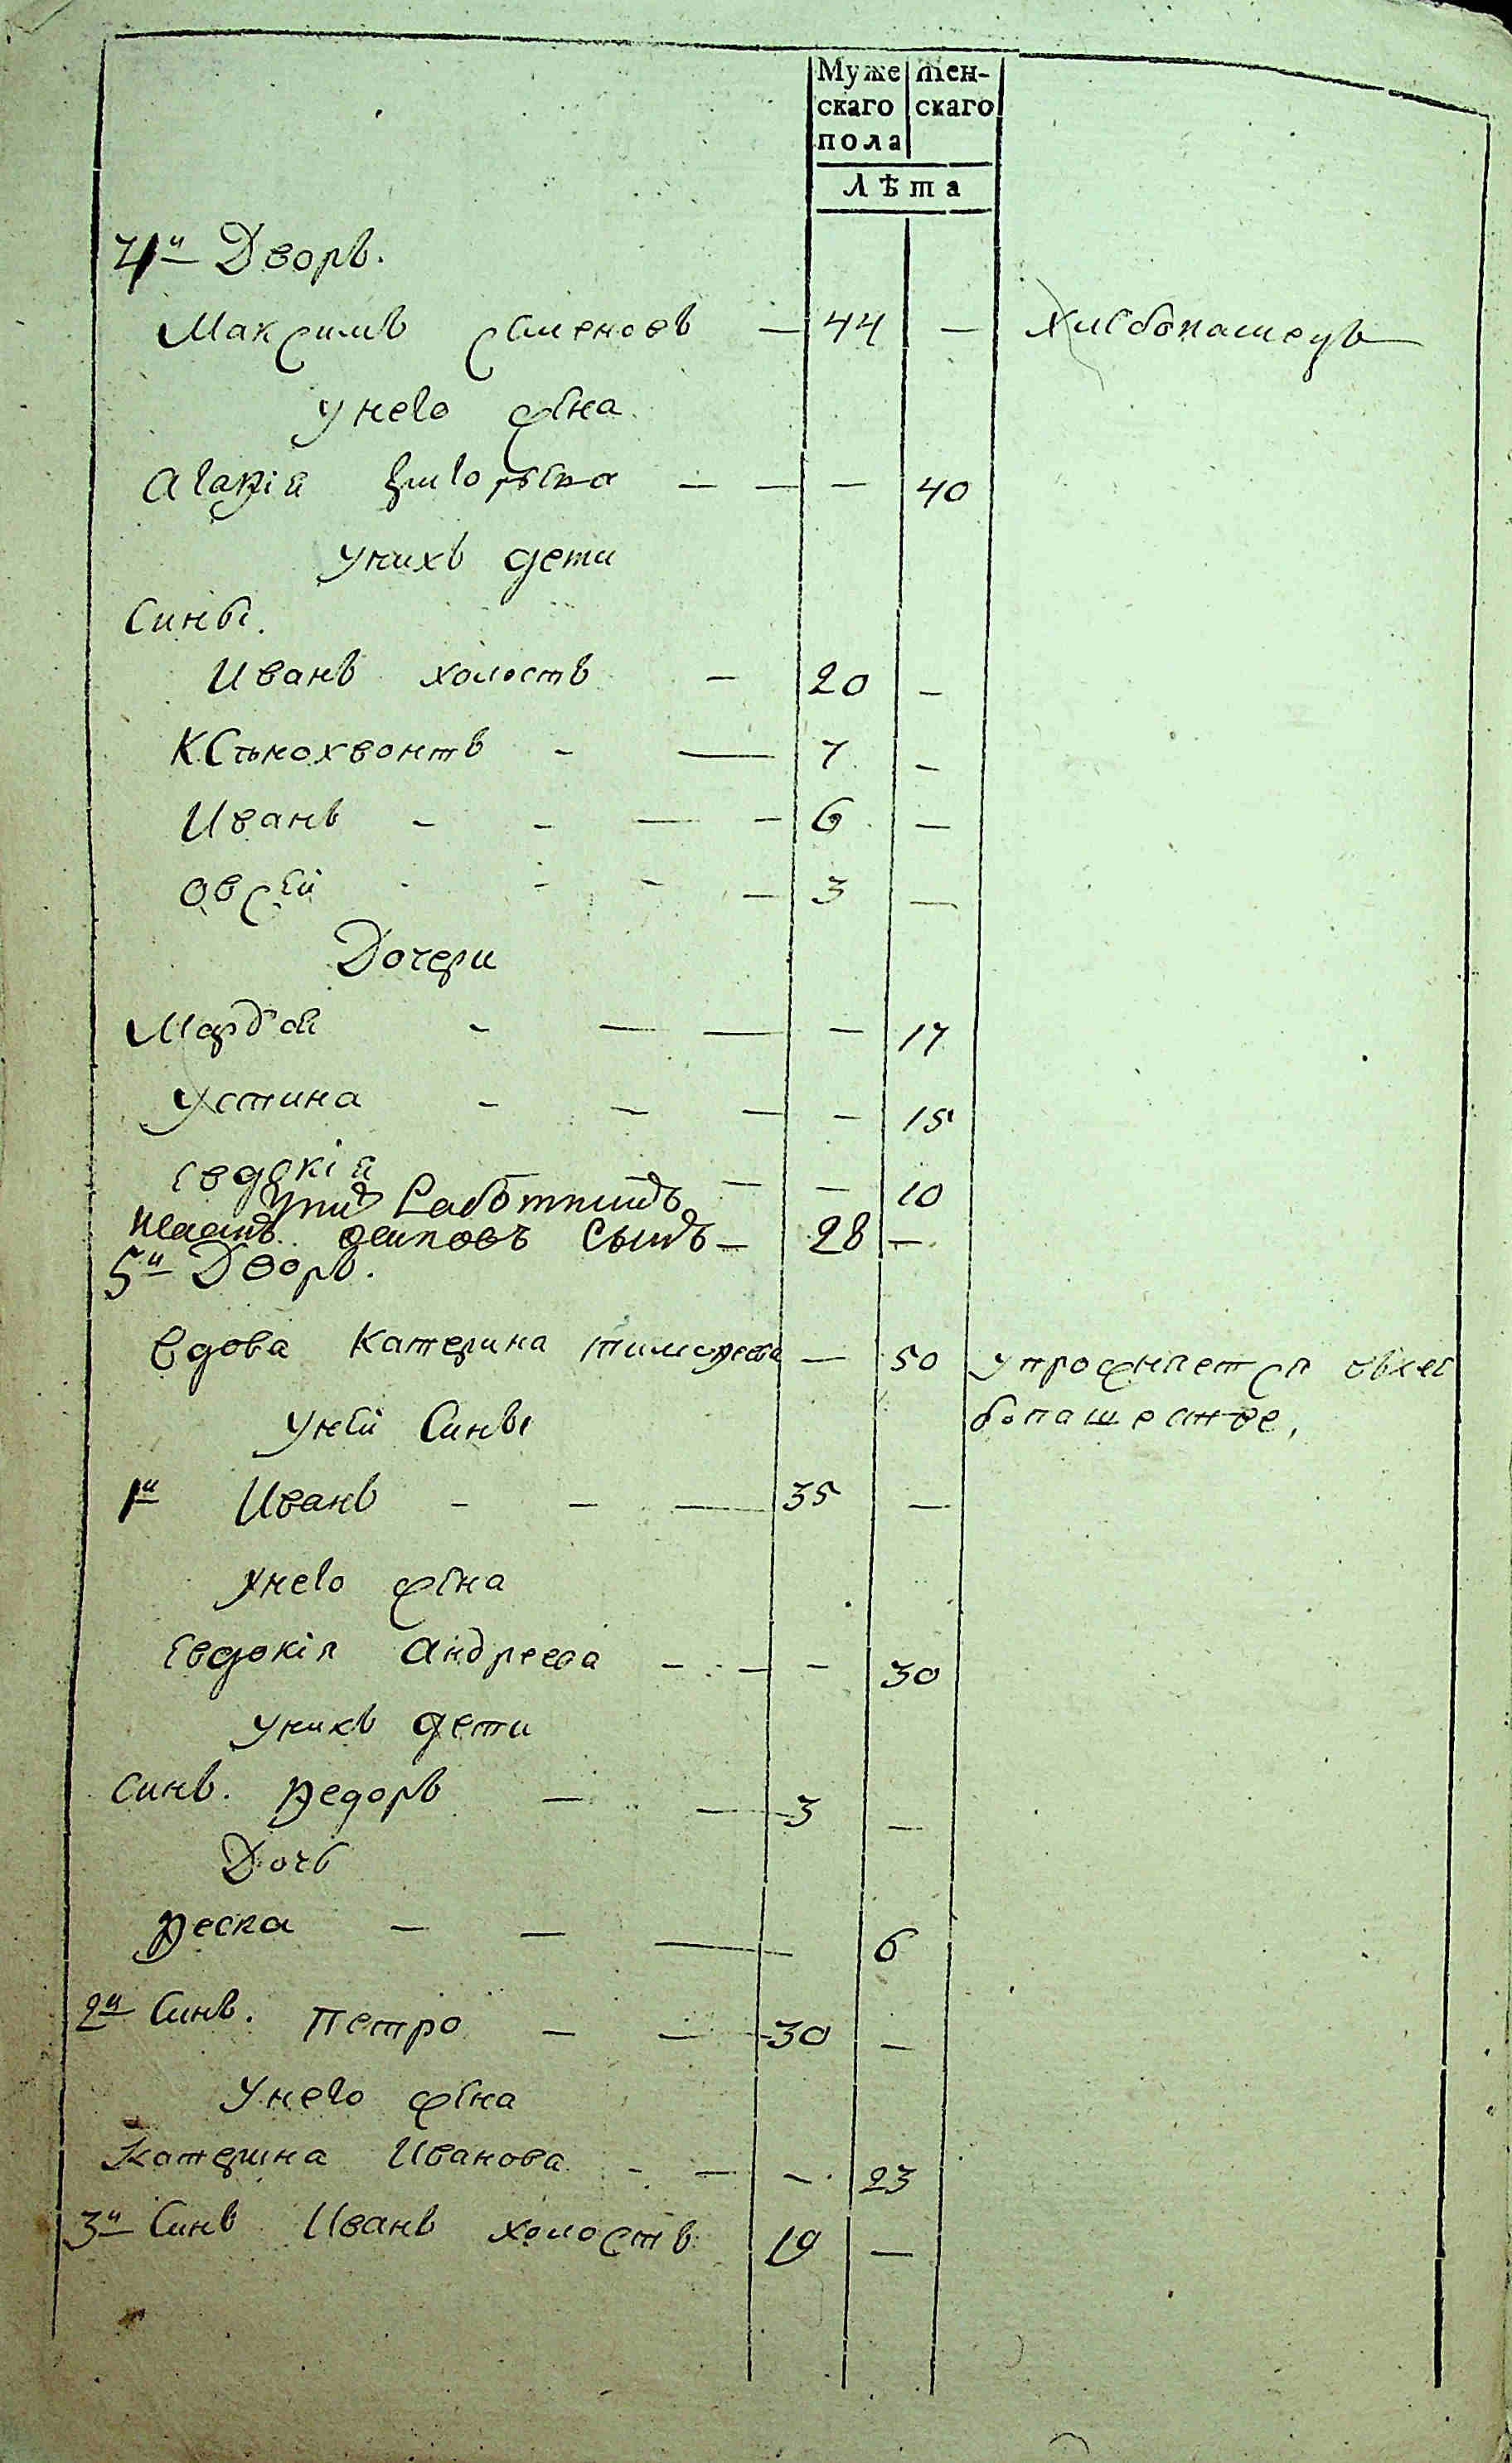 Муже жен-
скаго скаго
пола
Лѣта
4й Дворъ.
Максимъ Семеновъ — 44 — хлебопашецъ
унего жена
Агафiя — — — 40
унихъ дети
Сины.
Иванъ холостъ — 20 —
Ксѣнохвонтъ - — 7 —
Иванъ - - — - 6 —
Овсей - - - — 3 —
Дочери
Марѳа - — — — 17
Устина - — — — 15
Евдокiя — — 10
Работникъ
осиповъ сынъ — 28 —
5й Дворъ.
Вдова Катерина Тимофеева — 50 упрожняется вхле
бопашестве,
уней Сины
1й Иванъ - — — 35 —
унего жена
Евдокiя Андреева - - - 30
унихъ дети
Синъ. Федоръ — — 3 —
Дочь
Феска — — — 6
2й Синъ. Петро — — 30 —
Унего жена
Катерина Иванова - — - 23
3й Синъ Иванъ холостъ 19 —